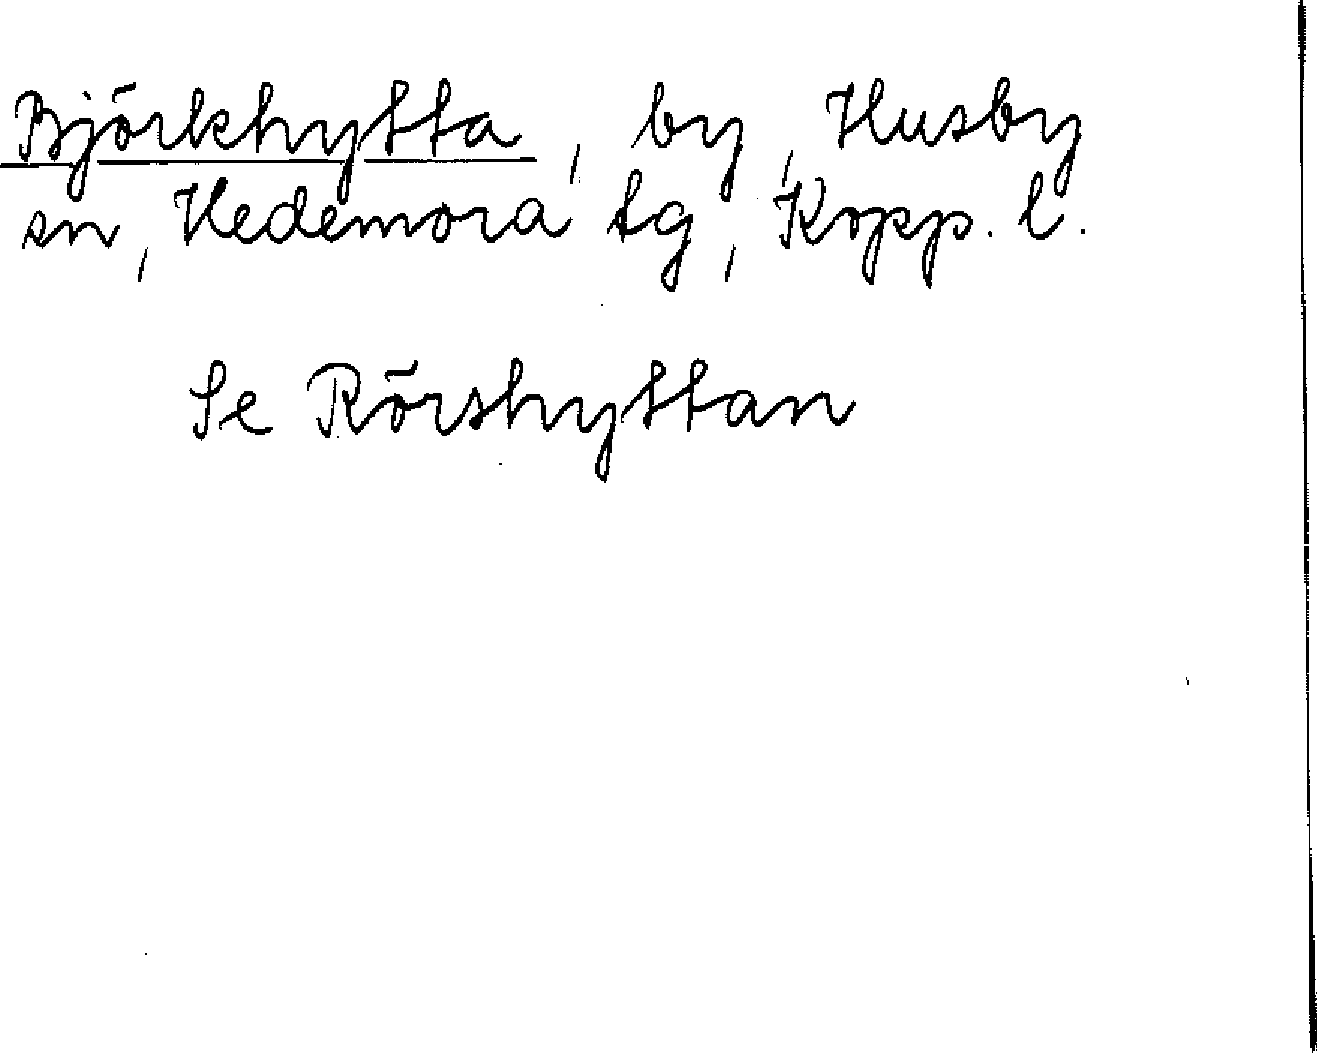 Björkhytta, by, Husby
sn, Hedemora tg, Kopp. l.
Se Rörshyttan